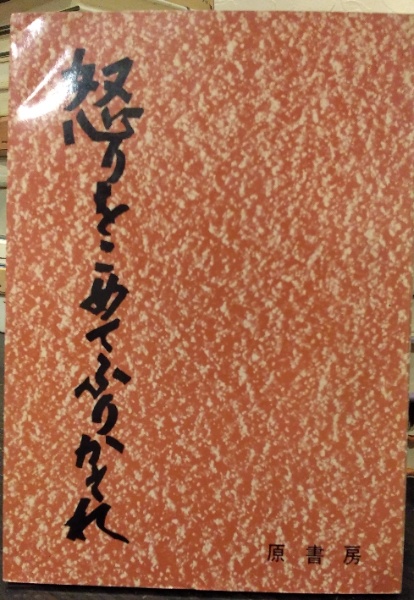 怒りをこめてふりかえれ
原書房